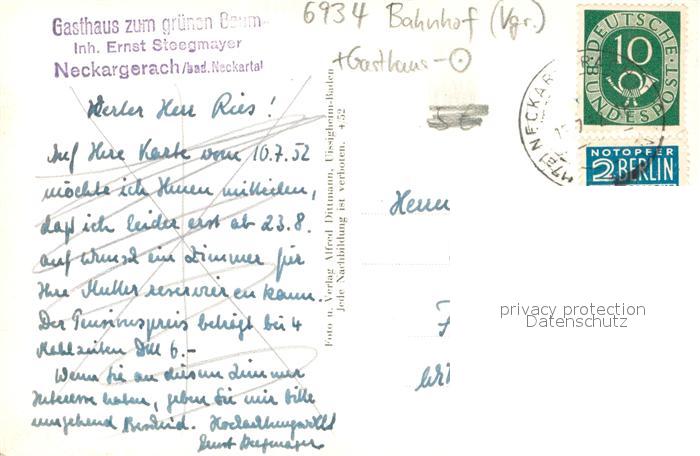 Gasthaus zum grünen Baum
Inh. Ernst Steegmayer
Neckargerach/bad. Neckartal
6934 Bahnhof (Vgr.)
+Gasthaus-
DEUTSCHE BUNDESPOST
10
NOTOPFER
2 BERLIN
(17a) NECKAR
Werter Herr Ries!
Auf Ihre Karte vom 10.7.52
möchte ich Ihnen mitteilen,
daß ich leider erst ab 23.8.
auf Wunsch ein Zimmer für
Ihre Mutter reservieren kann.
Der Pensionspreis beträgt bei 4
Mahlzeiten DM 6.-
Wenn Sie an diesem Zimmer
Interesse haben, geben Sie mir bitte
umgehend Bescheid. Hochachtungsvoll
Ernst Steegmayer
Foto u. Verlag Alfred Dittmann, Uissigheim-Baden
Jede Nachbildung ist verboten. 4/52
Herrn
privacy protection
Datenschutz